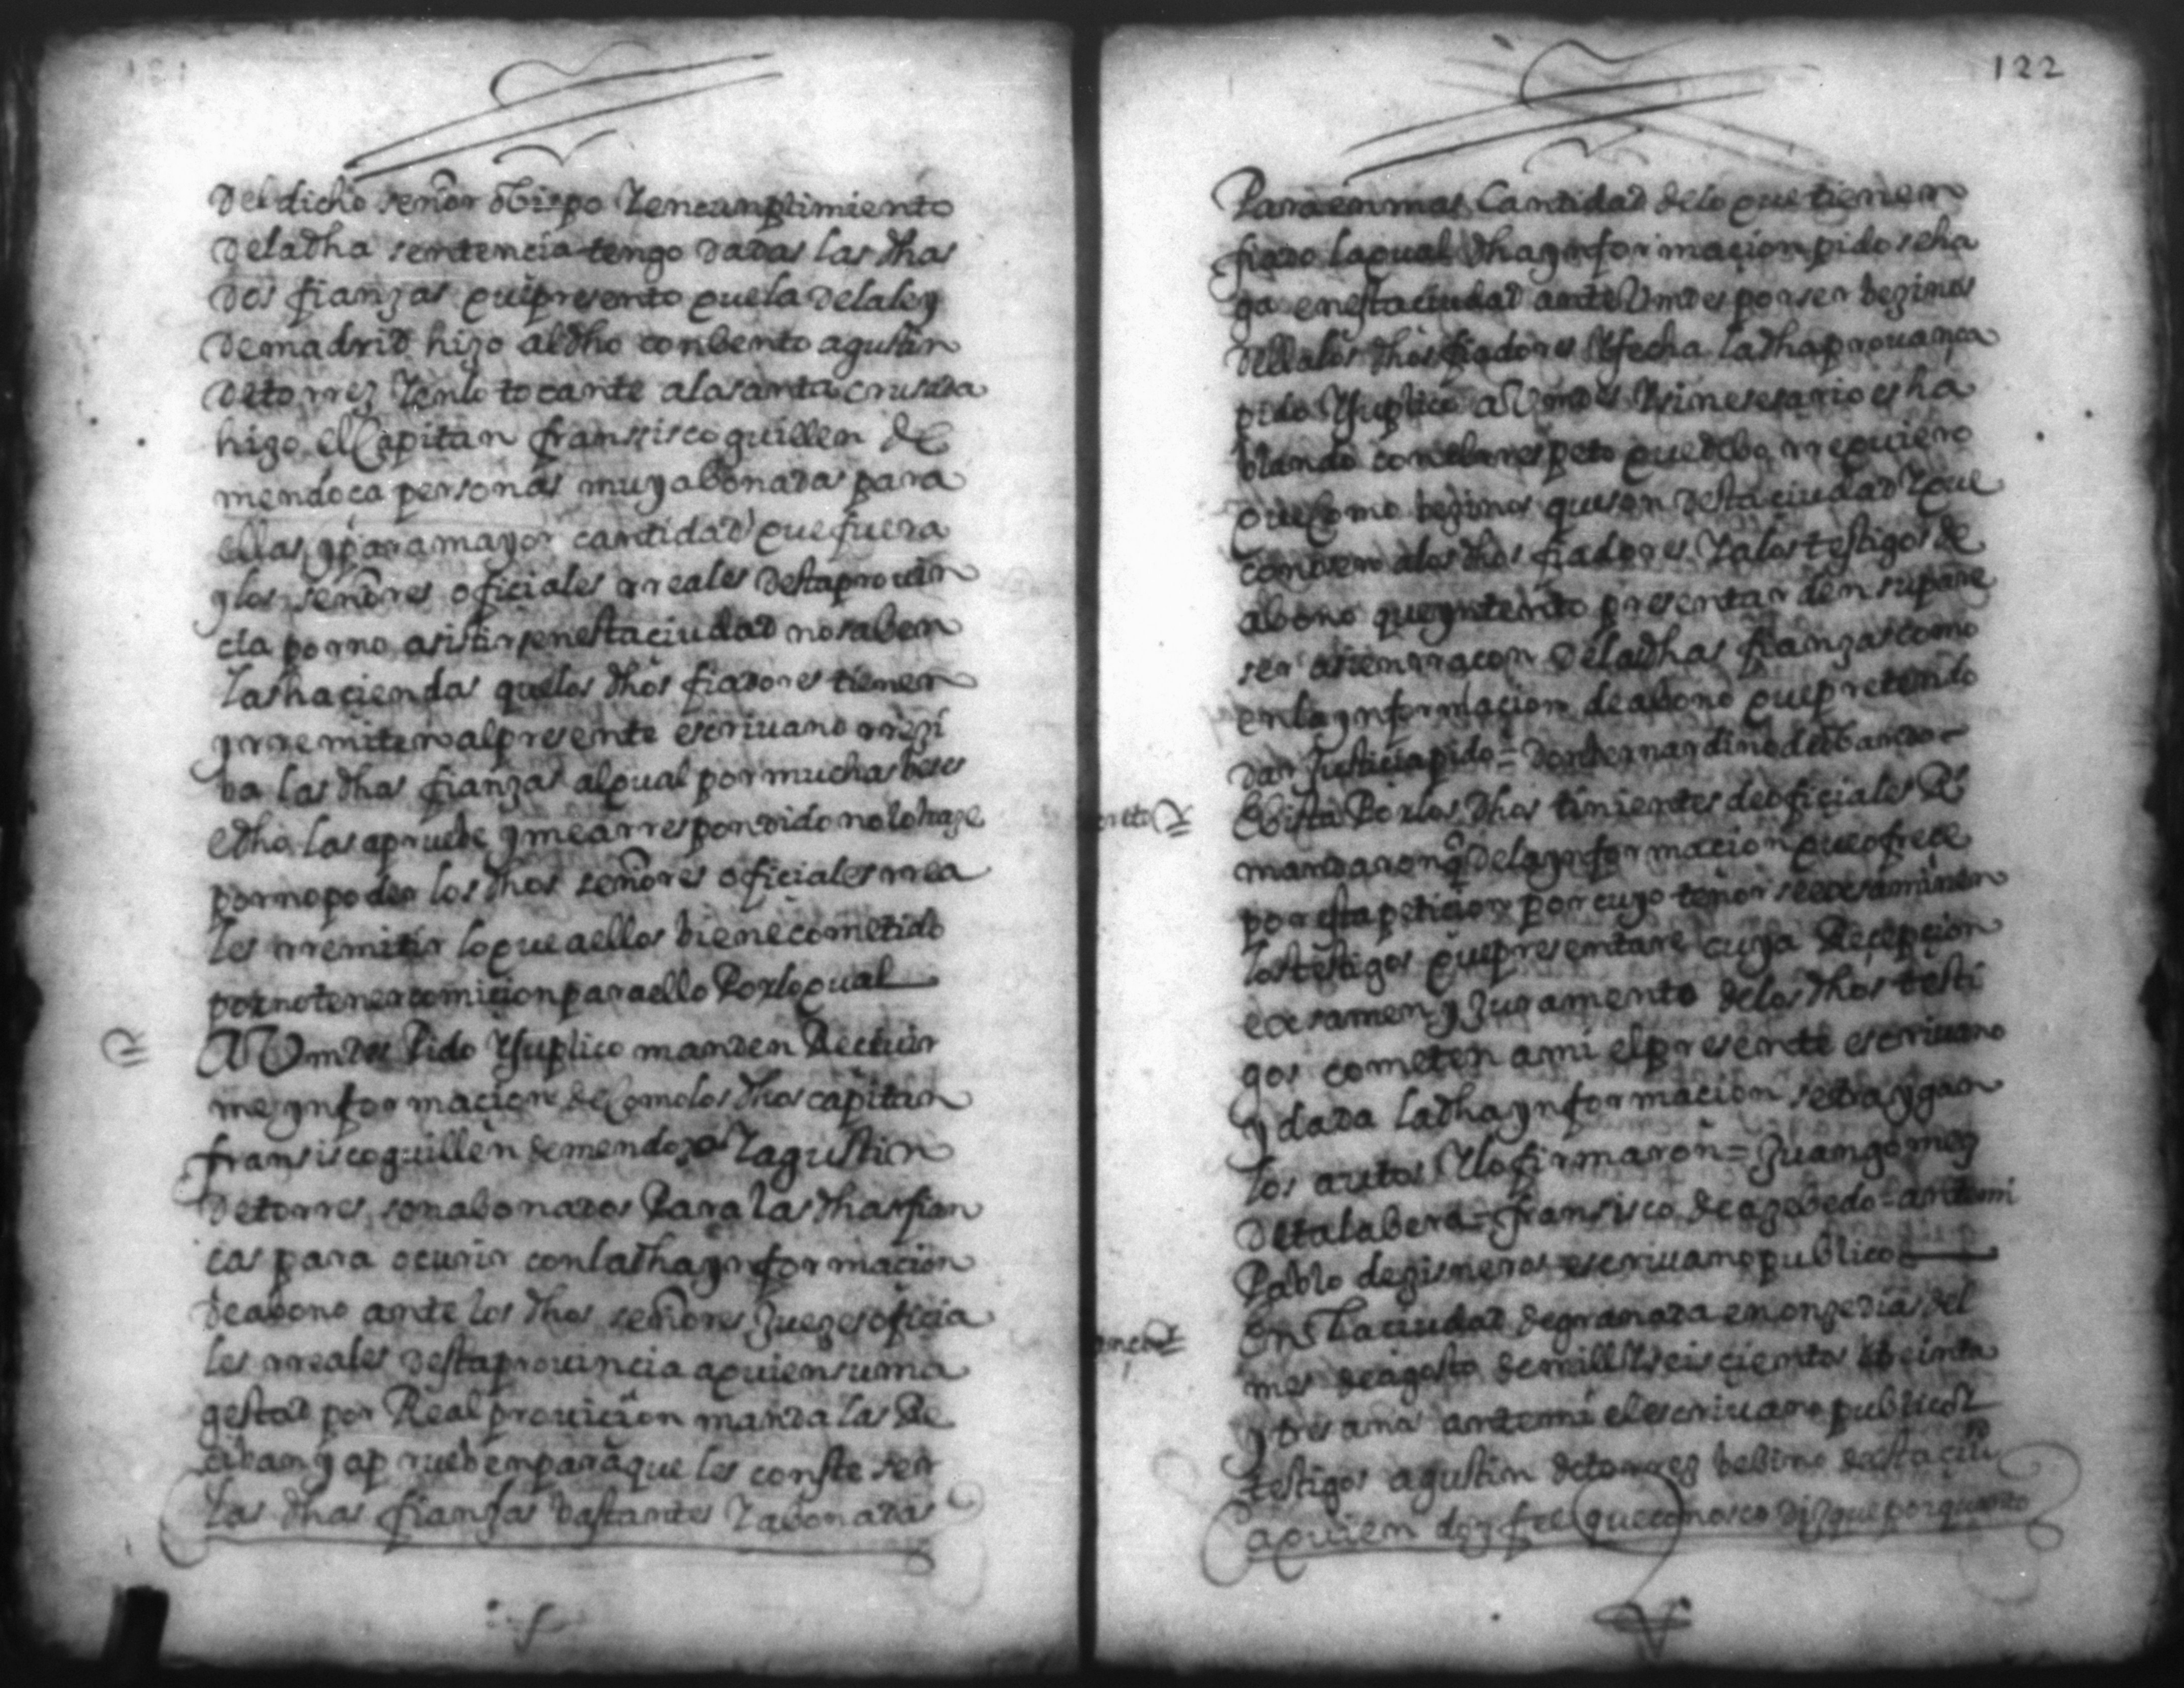 del dicho señor obispo Y en cunplimiento
de la dha sentencia tengo dadas las dhas
dos fianzas que presento que la de la ley
de madrid hizo al dho conbento agustin
de torrez Y en lo tocante a la santa crusada
hizo el Capitan fransisco guillen de
mendoca personas muy abonadas para
ellas y para mayor cantidad que fuera
y los señores oficiales rreales desta provin
cia por no asistir en esta ciudad no saben
las haciendas que los dhos fiadores tienen
y rremiten al presente escriuano rresi
ba las dhas fianzas al qual por muchas beses
e dho las apruebe y me a rrespondido no lo haze
por no poder los dhos señores oficiales rrea
les rremitir lo que a ellos biene cometido
por no tener comicion para ello Por lo qual
A Vmdes Pido Y suplico manden Recibir
me ynformacion de Como los dhos capitan
fransisco guillen de mendoza Y agustin
de torres son abonados Para las dhas fian
cas para ocurir con la dha ynformacion
de abono ante los dhos señores Juezes oficia
les rreales desta prouincia a quien su ma
gestad por Real prouicion manda las Re
ciban y aprueben para que les conste ser
las dhas fianzas bastantes Y abonadas
122
Para en mas Cantidad de lo que tienen
fiado la qual dha ynformacion pido se ha
ga en esta ciudad ante Vmdes por ser bezinos
della los dhos fiadores Y fecha la dha prouança
pido Y suplico a Vmdes Y si nesesario es ha
blando con el un respeto que debo rrequiero
que Como bezinos que son desta ciudad Y que
conosen a los dhos fiadores Y a los testigos de
abono que yntento presentar den su pare
ser asi en rracon de la dhas fianzas como
en la ynformacion de abono que pretendo
dar Justicia pido = don bernardino de obando
E Vista Por los dhos tinientes de oficiales Rs
mandaron q de la ynformacion que ofrece
por esta peticion por cuyo tenor se ecsaminen
los testigos que presentare cuya Recepcion
ecsamen y Juramento de los dhos testi
gos cometen a mi el presente escriuano
y dada la dha ynformacion se traygan
los autos Y lo firmaron = Juan gomez
de talabera = fransisco de azebedo = ante mi
Pablo de zisneros escriuano publico
En la ciudad de granada en onze dias del
mes de agosto de mill Y seiscientos Y beinte
y tres años ante mi el escriuano publico Y
testigos agustin de torrez besino desta ciud
a quien doy fee que conosco dijo que por quanto